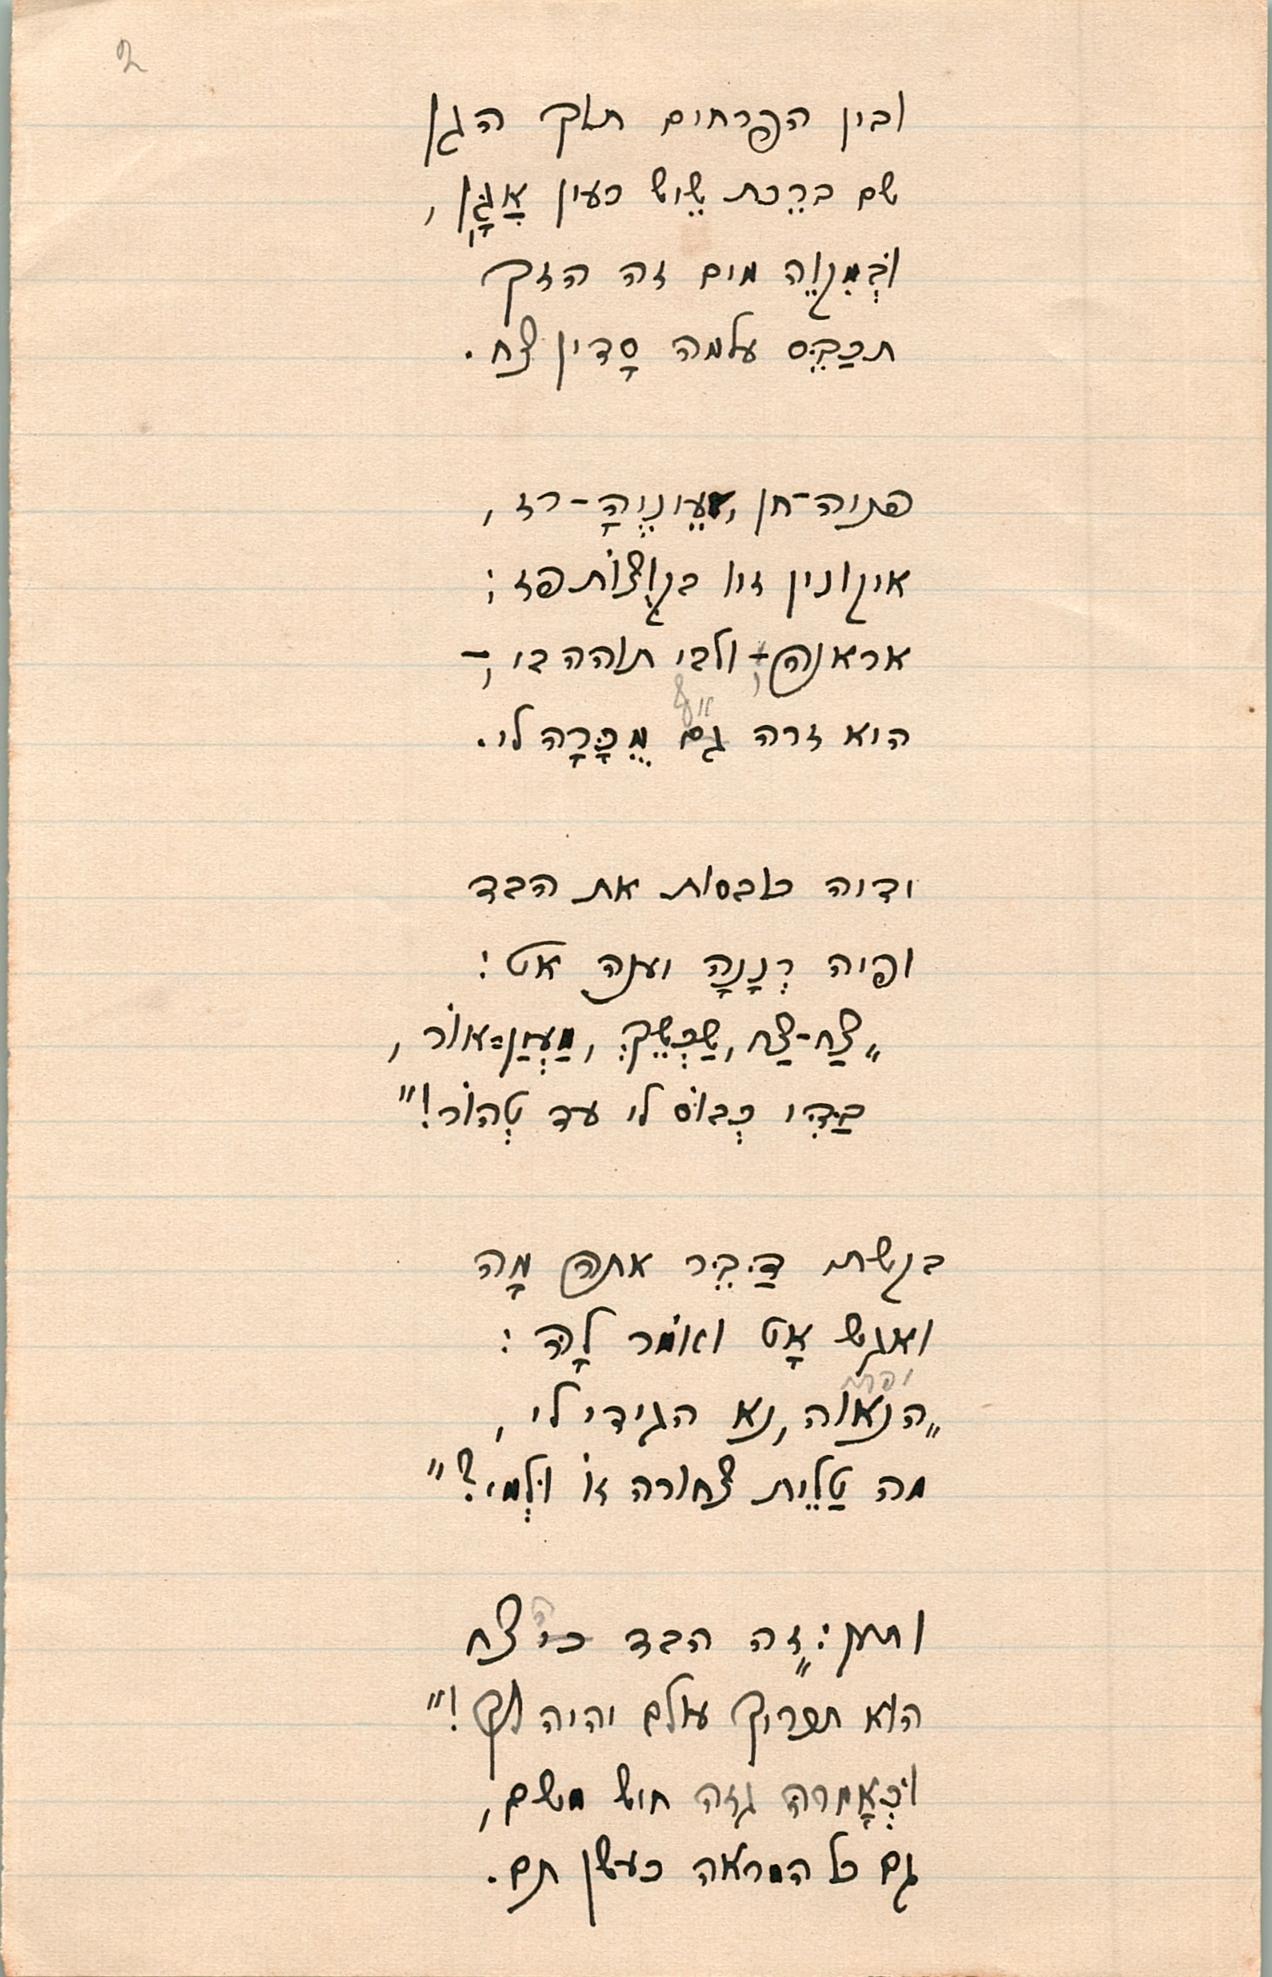 2
ובין הפרחים תוך הגן
שם ברֵכת שֵׁיש כעין אַגָּן,
וּבְמִקוֵה מים זה הזך
תכַבֵּס עלמה סָדין צח.
פניה־חן, עֵינֶיהָ־רז,
איקונין זיו בקוֻצּוֹת פז;
אראנה, ולבי תוהה בי,–
היא זרה גם אף מֻכָּרָה לי.
ידיה כובסות את הבד
ופיה רְנָנָה וענה אט:
„צַח־צַח, שַׁכְשֵׁךְ, מַעְיַן־אוֹר,
בַּדִּי כְּבוֹס לי עד טְהוֹר!"
בגשת דַּבֵּר אתה מָה
ואגש אָט ואומר לָהּ:
„הנאוה, נא הגידי לי,
מה טַלֵּית צחורה זוֹ וּלְמי?"
ותען: „זה הבד כי צח
הוא תכריך עולם יהיה לך!"
וּכְאָמרהּ גזה חיש משם,
גם כל המראה כעשן תם.